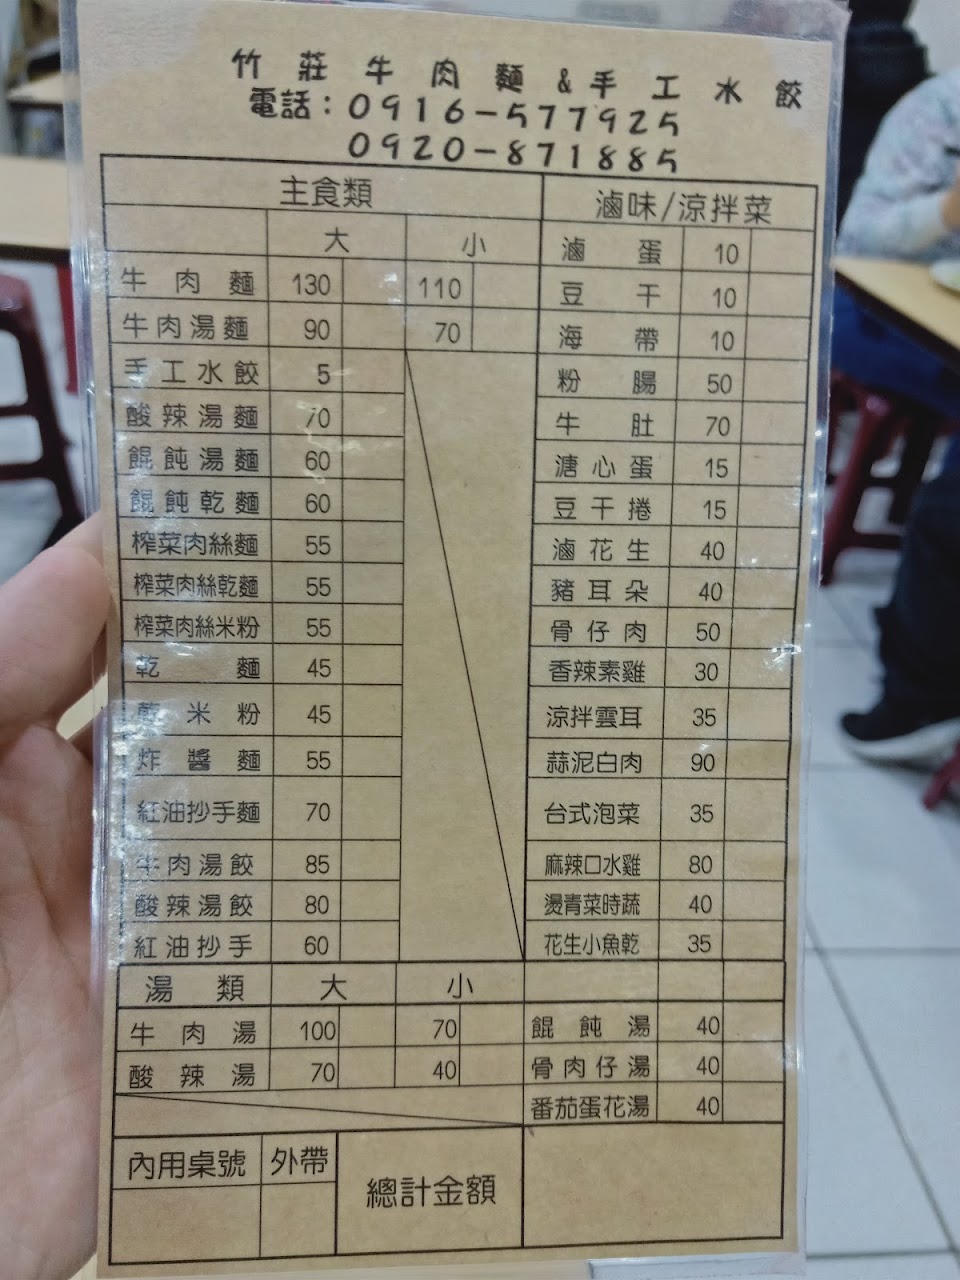 竹莊牛肉麵&手工水餃
電話：0916-577925
0920-871885
主食類
大 小
牛肉麵 130 110
牛肉湯麵 90 70
手工水餃 5
酸辣湯麵 70
餛飩湯麵 60
餛飩乾麵 60
榨菜肉絲麵 55
榨菜肉絲乾麵 55
榨菜肉絲米粉 55
乾麵 45
乾米粉 45
炸醬麵 55
紅油抄手麵 70
牛肉湯餃 85
酸辣湯餃 80
紅油抄手 60
滷味/涼拌菜
滷蛋 10
豆干 10
海帶 10
粉腸 50
牛肚 70
溏心蛋 15
豆干捲 15
滷花生 40
豬耳朵 40
骨仔肉 50
香辣素雞 30
涼拌雲耳 35
蒜泥白肉 90
台式泡菜 35
麻辣口水雞 80
燙青菜時蔬 40
花生小魚乾 35
湯類 大 小
牛肉湯 100 70
酸辣湯 70 40
餛飩湯 40
骨肉仔湯 40
番茄蛋花湯 40
內用桌號 外帶 總計金額